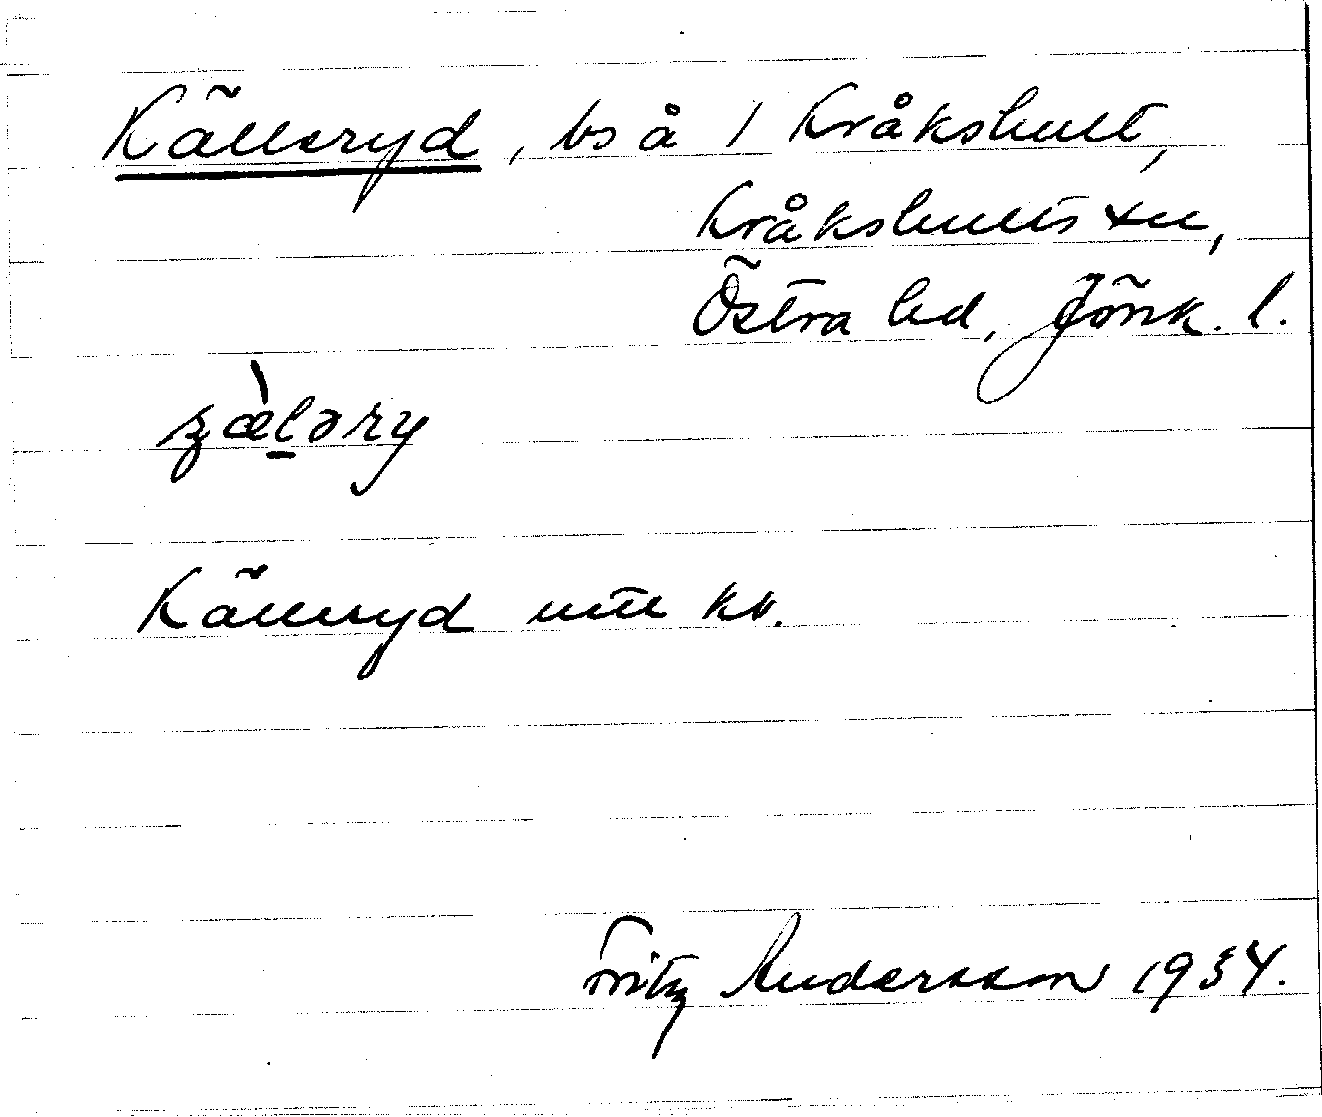 Källeryd, bs å 1 Kråkshult,
Kråkshults sn,
Östra hd, Jönk. l.
Källeryd utt kv.
Fritz Andersson 1934.